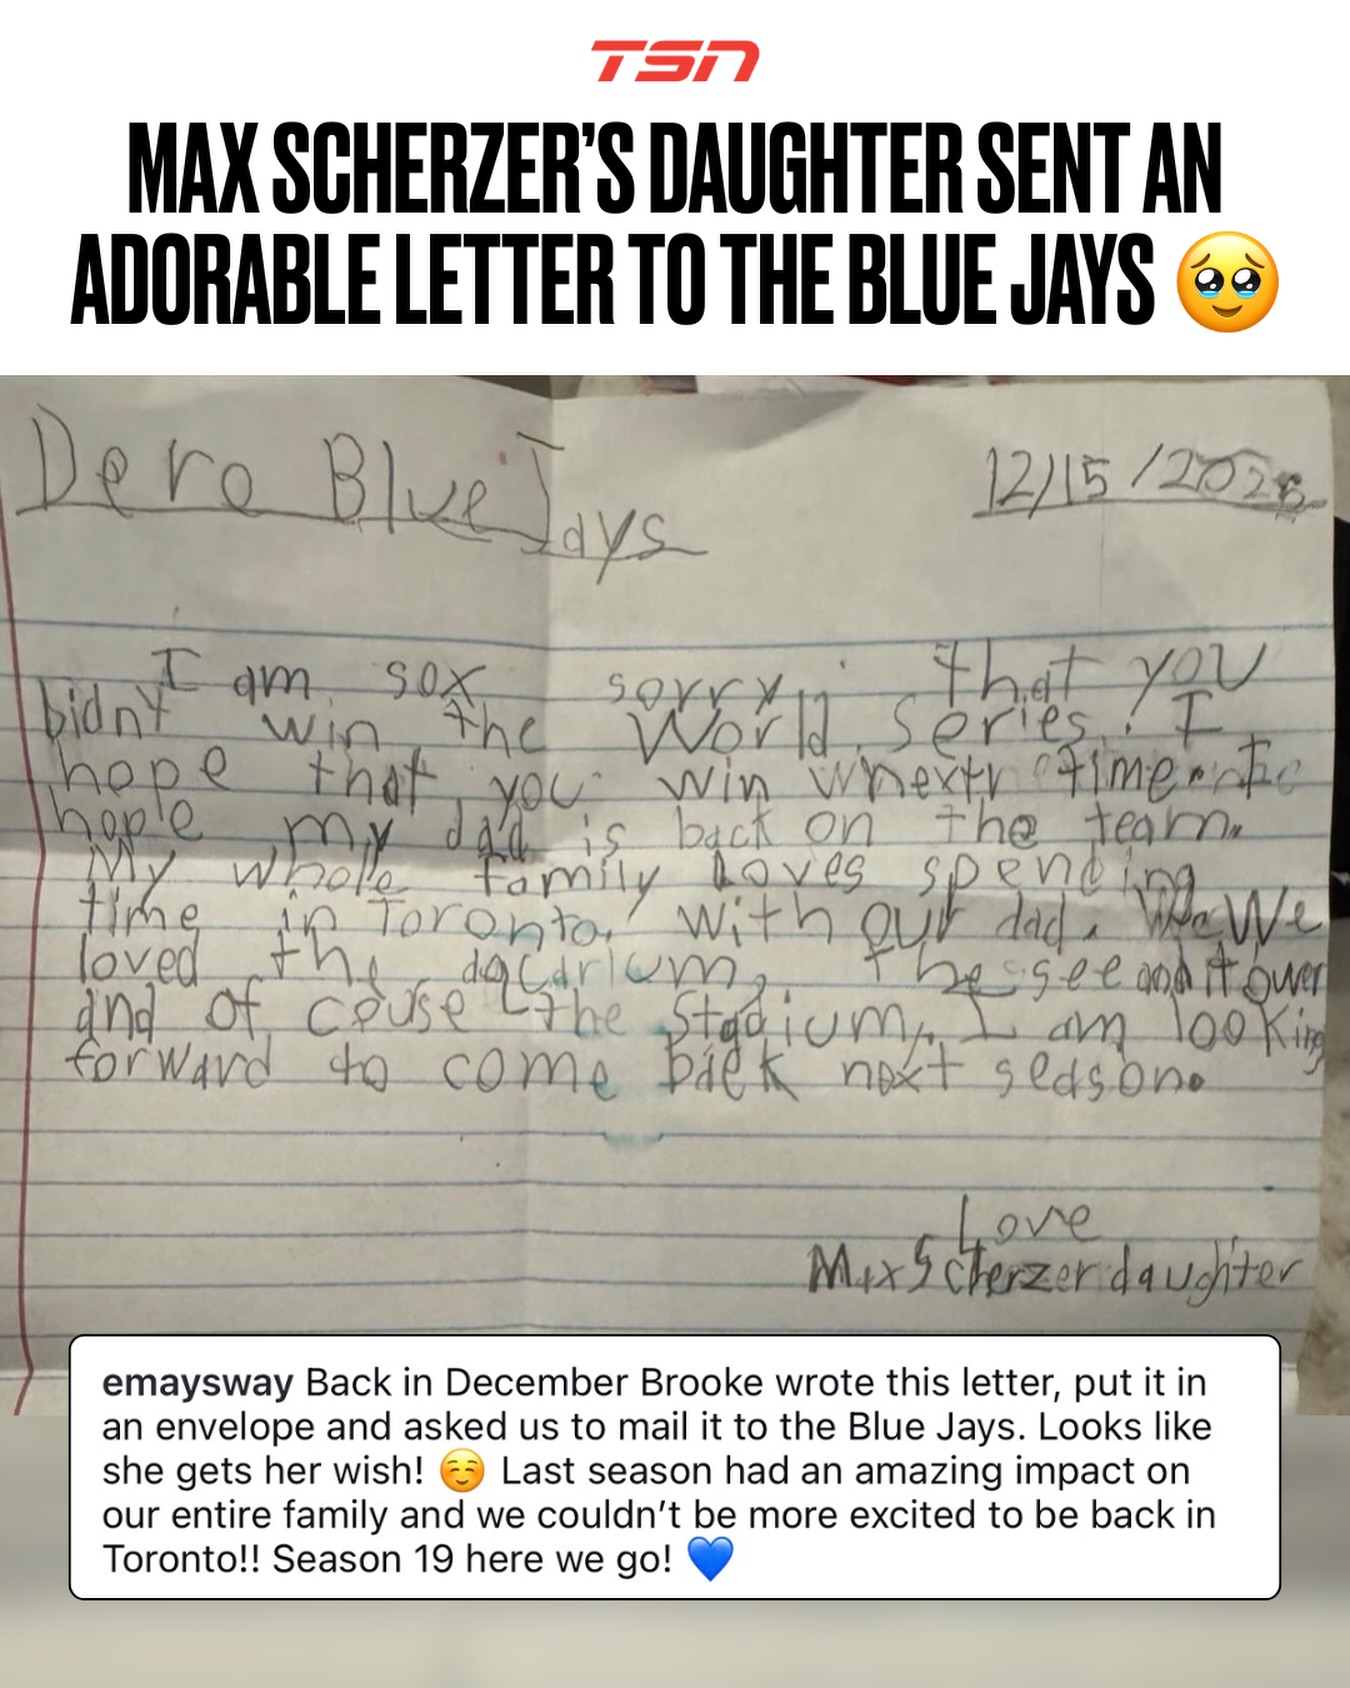 TSN
MAX SCHERZER'S DAUGHTER SENT AN
ADORABLE LETTER TO THE BLUE JAYS 🥹
Dero Blue Jays
12/15/202
I am sox sorry that you
bidnt win the World series. I
hope that you win next time
hope my dad is back on the team.
My whole family Loves spending
time in Toronto, with our dad. We
loved the the see and it ower
and of couse the Stadium, I am looking
forward to come back next season.
Love
Max Scherzer daughter
emaysway Back in December Brooke wrote this letter, put it in
an envelope and asked us to mail it to the Blue Jays. Looks like
she gets her wish! ☺️ Last season had an amazing impact on
our entire family and we couldn't be more excited to be back in
Toronto!! Season 19 here we go! 💙